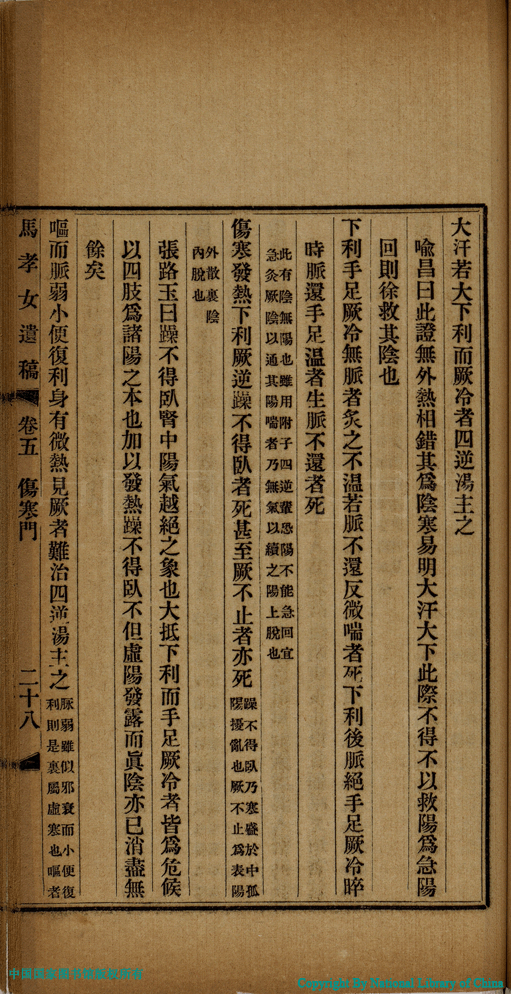 大汗若大下利而厥冷者四逆湯主之
喩昌曰此證無外熱相錯其爲陰寒易明大汗大下此際不得不以救陽爲急陽
回則徐救其陰也
下利手足厥冷無脈者炙之不溫若脈不還反微喘者死下利後脈絕手足厥冷晬
時脈還手足溫者生脈不還者死
此有陰無陽也雖用附子四逆輩恐陽不能急回宜
急灸厥陰以通其陽喘者乃無氣以續之陽上脫也
傷寒發熱下利厥逆躁不得臥者死甚至厥不止者亦死
躁不得臥乃寒盛於中孤
陽擾亂也厥不止爲表陽
外散裏陰
內脫也
張路玉曰躁不得臥腎中陽氣越絕之象也大抵下利而手足厥冷者皆爲危候
以四肢爲諸陽之本也加以發熱躁不得臥不但虛陽發露而眞陰亦已消盡無
餘矣
嘔而脈弱小便復利身有微熱見厥者難治四逆湯主之
脈弱雖似邪衰而小便復
利則是裏屬虛寒也嘔者
馬孝女遺稿
卷五 傷寒門
二十八
中国国家图书馆版权所有
Copyright By National Library of China